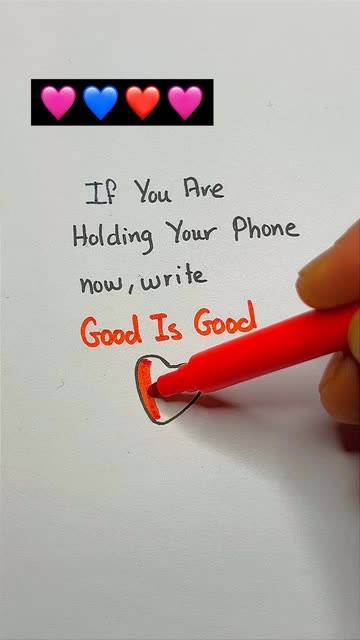 If You Are
Holding Your Phone
now, write
Good Is Good